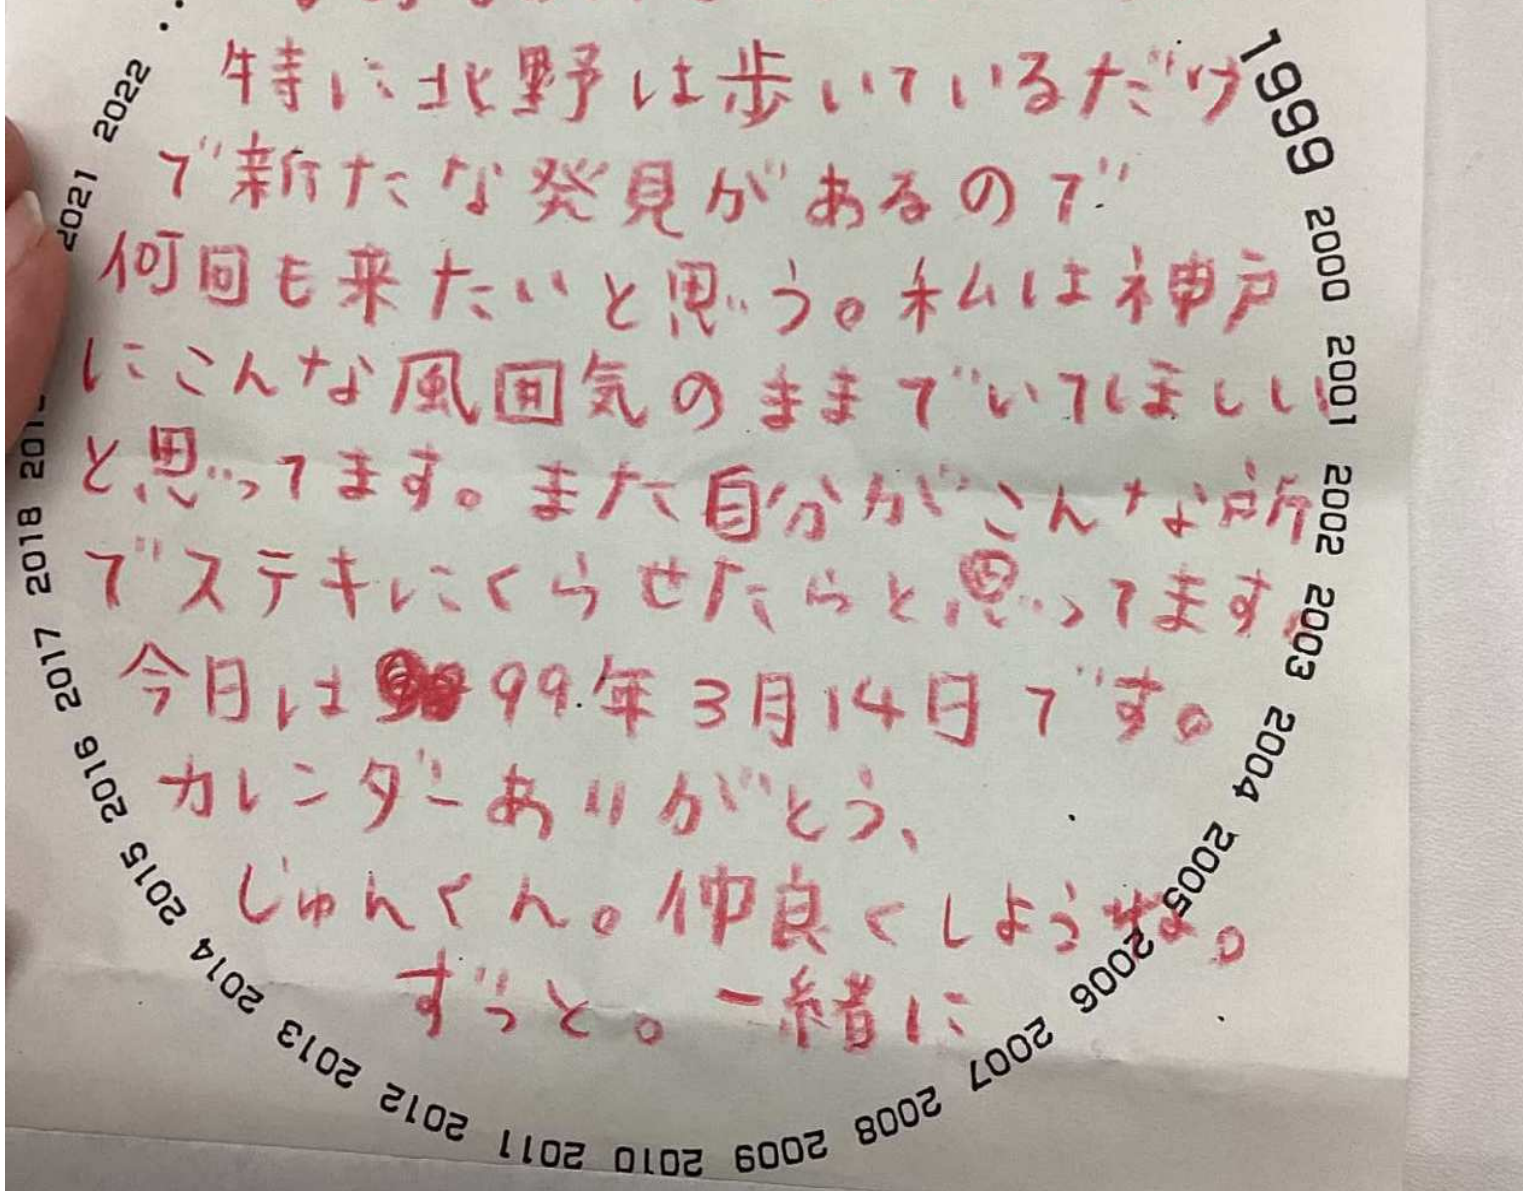 特に北野は歩いているだけ
で新たな発見があるので
何回も来たいと思う。私は神戸
にこんな風囲気のままでいてほしい
と思ってます。また自分がこんな所
でステキにくらせたらと思ってます。
今日は 99.年3月14日です。
カレンダーありがとう、
じゅんくん。仲良くしようね。
ずっと。一緒に
1999 2000 2001 2002 2003 2004 2005 2006 2007 2008 2009 2010 2011 2012 2013 2014 2015 2016 2017 2018 2021 2022